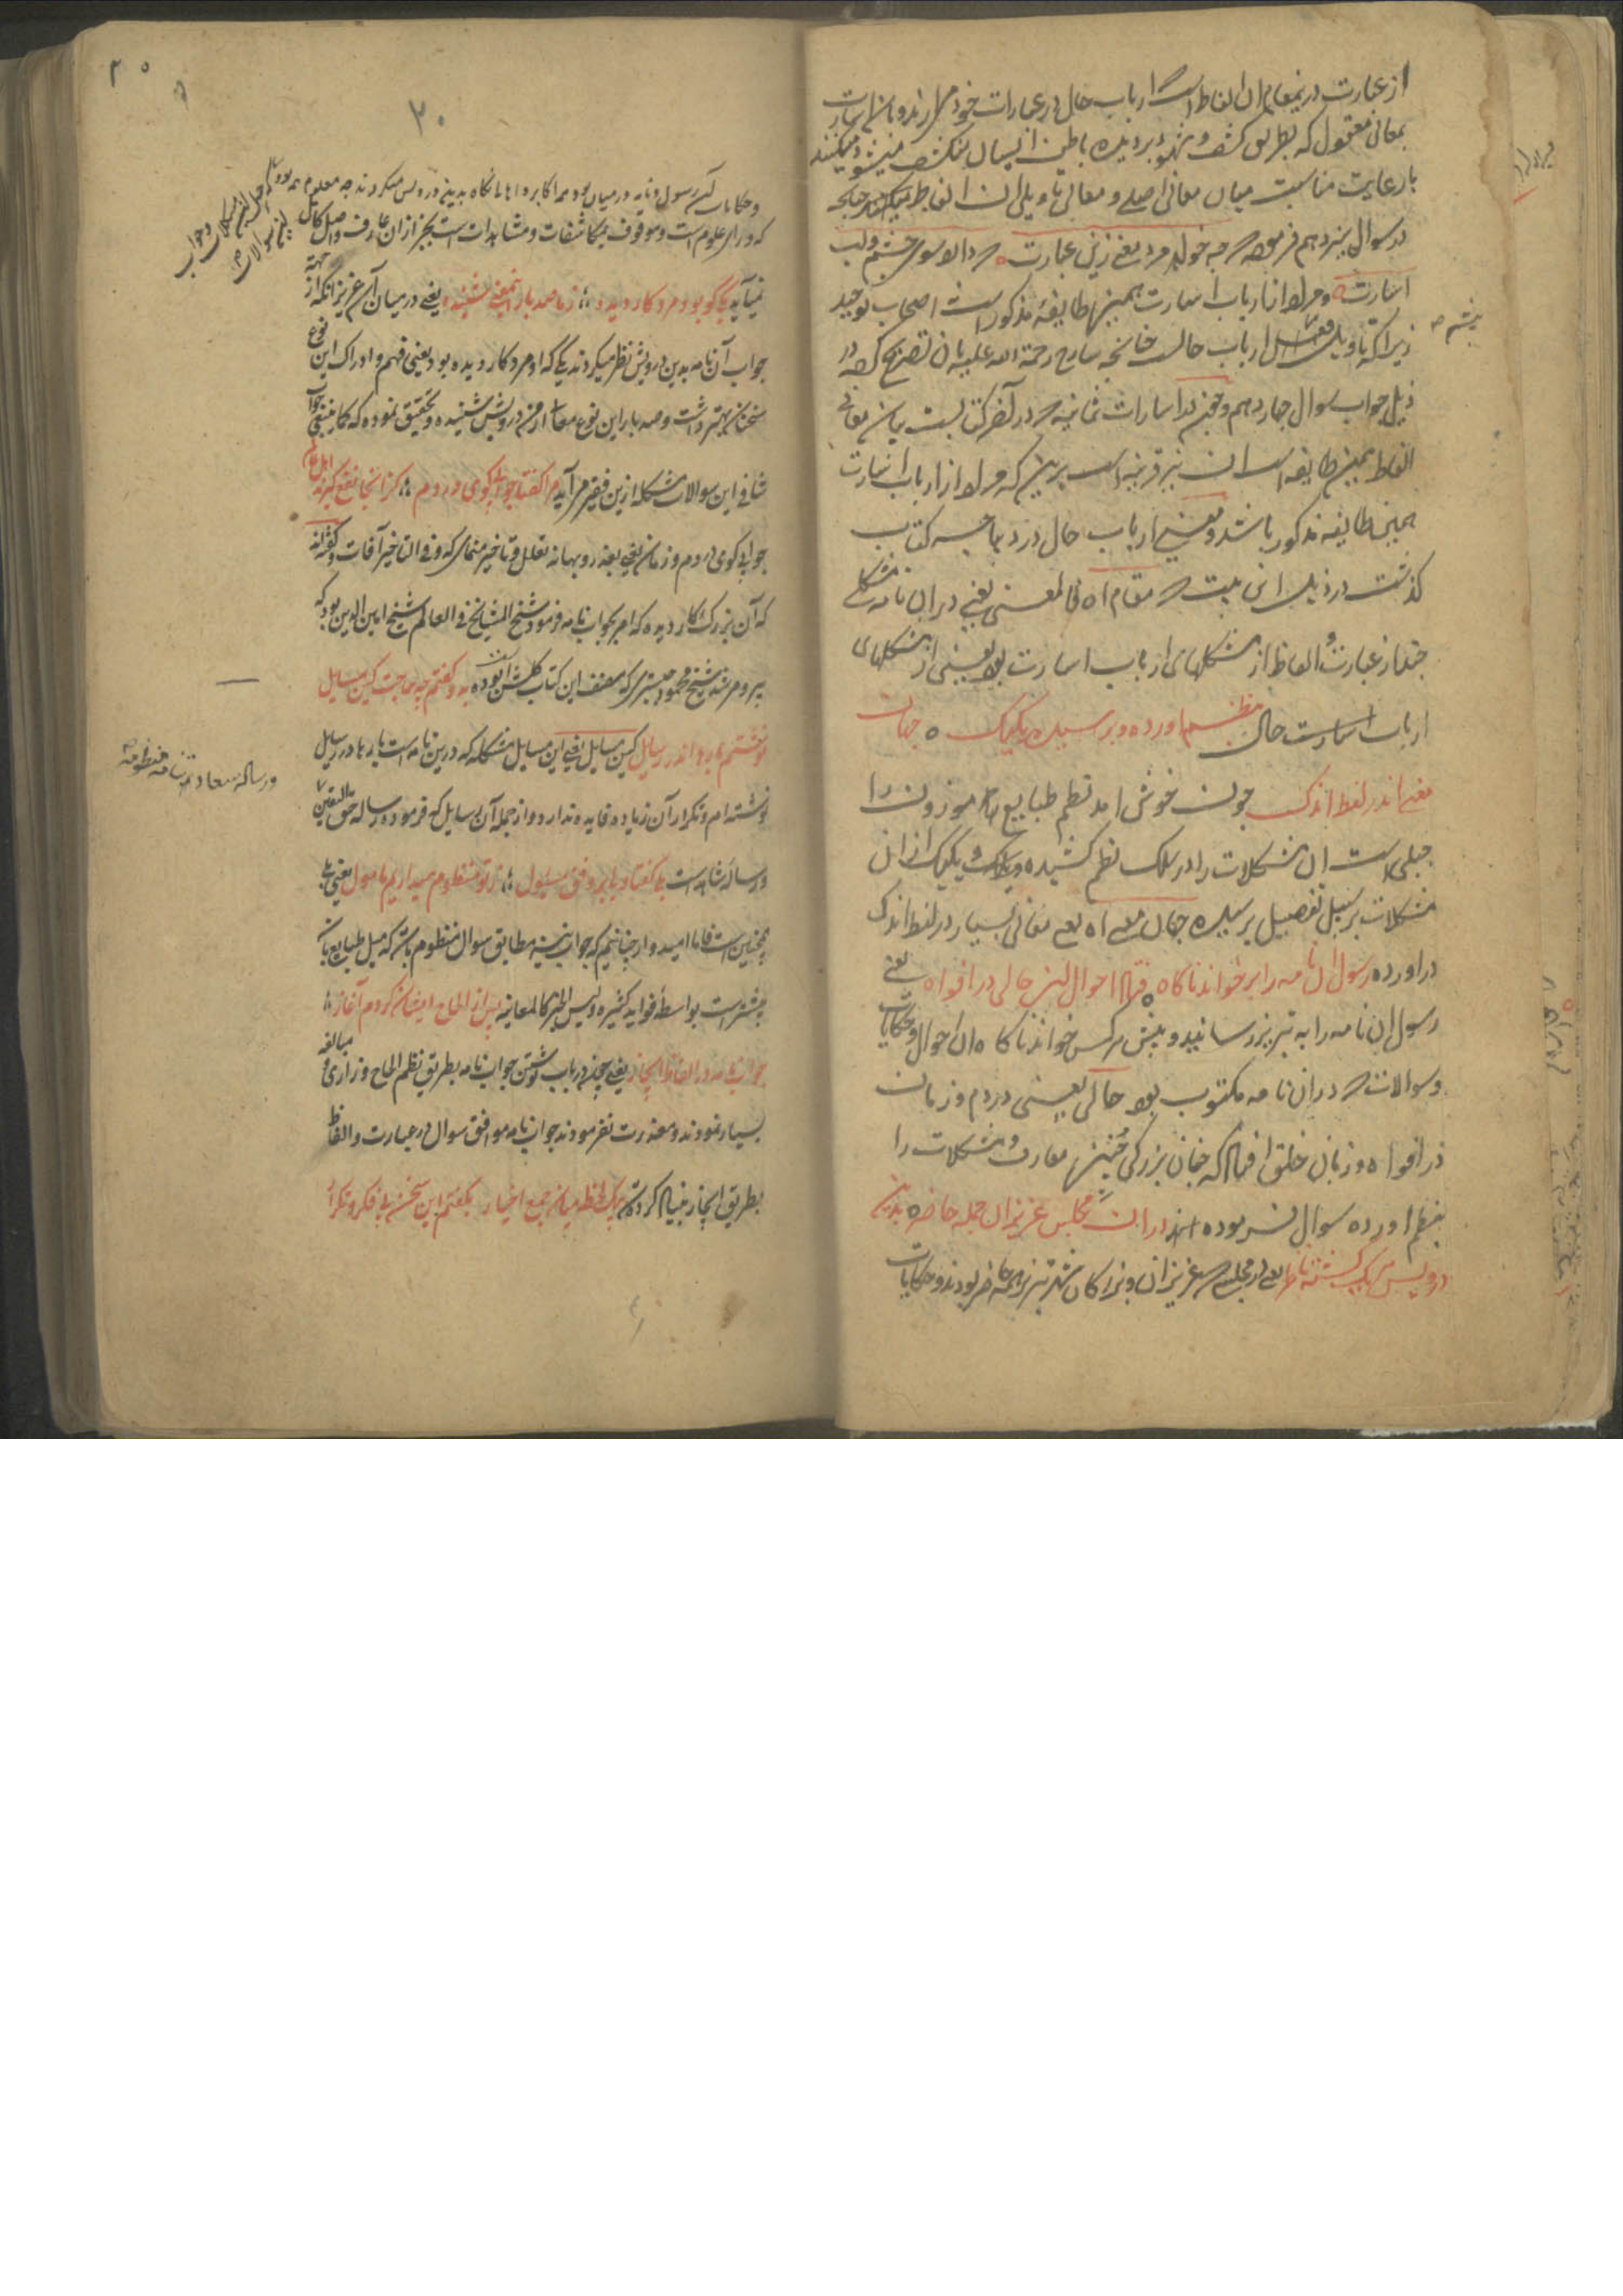 از عبارت درینمقام ان الفاظ است که ارباب حال در عبارات خود می آرند و بان اشارت
بمعانی معقول که بطریق کشف و شهود بر دیده باطن ایشان منکشف میشود میکنند
با رعایت مناسبت میان معانی اصلی و معانی تاویلی ان الفاظ میکنند چنانچه
در سوال سیزدهم فرموده که چه خواهد مرد معنی زین عبارت که دارد سوی چشم و لب
اشارت و مراد از ارباب اشارت همین طایفهٔ مذکور است اصحاب توحید
زیرا که تاویل فعل ارباب حالست چنانچه شارح رحمة الله علیه بان تصریح کرده در
ذیل جواب سوال چهاردهم و همچنین در اشارات ثمانیه که در آخر کتابست بیان معانی
الفاظ همین طایفه است ان نیز قرینه است برین که مراد از ارباب اشارت
همین طایفه مذکور باشد و معنی ارباب حال در دیباجه کتاب
گذشت در ذیل این بیت که مقام اه فی المعنی یعنی دران نامه مشکلی
چند از عبارت و الفاظ از مشکلهای ارباب اشارت بود یعنی از مشکلهای
ارباب اشارت حال بنظم اورده و پرسیده یک یک ه جهان
معنی اندر لفظ اندک چون خوش امد نظم طبایع موزون را
جبلی است ان مشکلات را در سلک نظم کشیده و یک یک ازان
مشکلات بر سبیل تفصیل پرسیده جهان معنی اه یعنی معانی بسیار در لفظ اندک
در اورده رسول ان نامه را برخواند ناگاه فتاد احوال این حالی در افواه یعنی
رسول ان نامه را به تبریز رسانید و پیش هرکس خواند ناگاه ان احوال و حکایات
و سوالات که در ان نامه مکتوب بود حالی یعنی در دم و زمان
در افواه و زبان خلق افتاد که چنان بزرگی چنینها معارف و مشکلات را
بنظم اورده سوال فرموده اند دران مجلس عزیزان جمله حاضر بدین
درویش هر یک گشته ناظر یعنی در مجلسی که عزیزان و بزرگان شهر تبریز همه حاضر بودند و حکایات
۲۰
و حکایات آن رسول و نامه در میان بود همه اکابر و اهالی نگاه بدین درویش میکردند چه معلوم همه بود که حل این مشکلات و جواب این سوالات
که ورای علوم است و موقوف بمکاشفات و مشاهدات است بجز از ان عارف واصل کامل
نمیآید یکی کو بود مرد کار دیده ؛ ز ما صد بار این معنی شنیده یعنی در میان آن عزیزانکه از جهة
جواب آن نامه بدین درویش نظر میکردند یکی که او مرد کار دیده بود یعنی فهم و ادراک این نوع
سخنان بهتر داشت و صد بار این نوع معارف ازین درویش شنیده و تحقیق نموده که کما ینبغی جواب
شافی این سوالات مشکله ازین فقیر می آید مرا گفتا جوابی گوی در دم ؛ کز اینجا نفع گیرند اهل عالم
جوابی گوی در دم و زمان یعنی بعذر و بهانه تعلل و تاخیر منمای که و فی التاخیر آفات و گفته اند
که آن بزرگ کار دیده که امر بجواب نامه فرمود شیخ المشایخ فی العالم شیخ امین الدین بود که
پیر و مرشد شیخ محمود شبستری که مصنف این کتاب گلشن است بوده بدو گفتم چه حاجت کین مسایل
نوشتم بارها اندر رسایل کین مسایل یعنی این مسایل مشکله که درین نامه است بارها در رسایل
نوشته ام و تکرار آن زیاده فایده ندارد و از جمله آن رسایل که فرموده رساله حق الیقین
و رساله سعادت نامه منظومه
و رساله شاهد است بلی گفتا ولی بر وفق مسئول ؛ ز تو منظوم میداریم مامول یعنی بلی
همچنین است فاما امیدوار چنانیم که جواب نیز مطابق سوال منظوم باشد که میل طبایع بان
بیشتر است بواسطه فواید کثیره و لیس الخبر کالمعاینه پس از الحاح ایشان کردم آغاز ؛
جواب نامه در الفاظ ایجاز یعنی چون در باب نوشتن جواب نامه بطریق نظم الحاح و زاری و مبالغه
بسیار نمودند و معذرت نفرمودند جواب نامه موافق سوال در عبارت و الفاظ
بطریق ایجاز بنیاد کردم بیک لحظه میان جمع احیار بگفتم این سخن بی فکر و تکرار